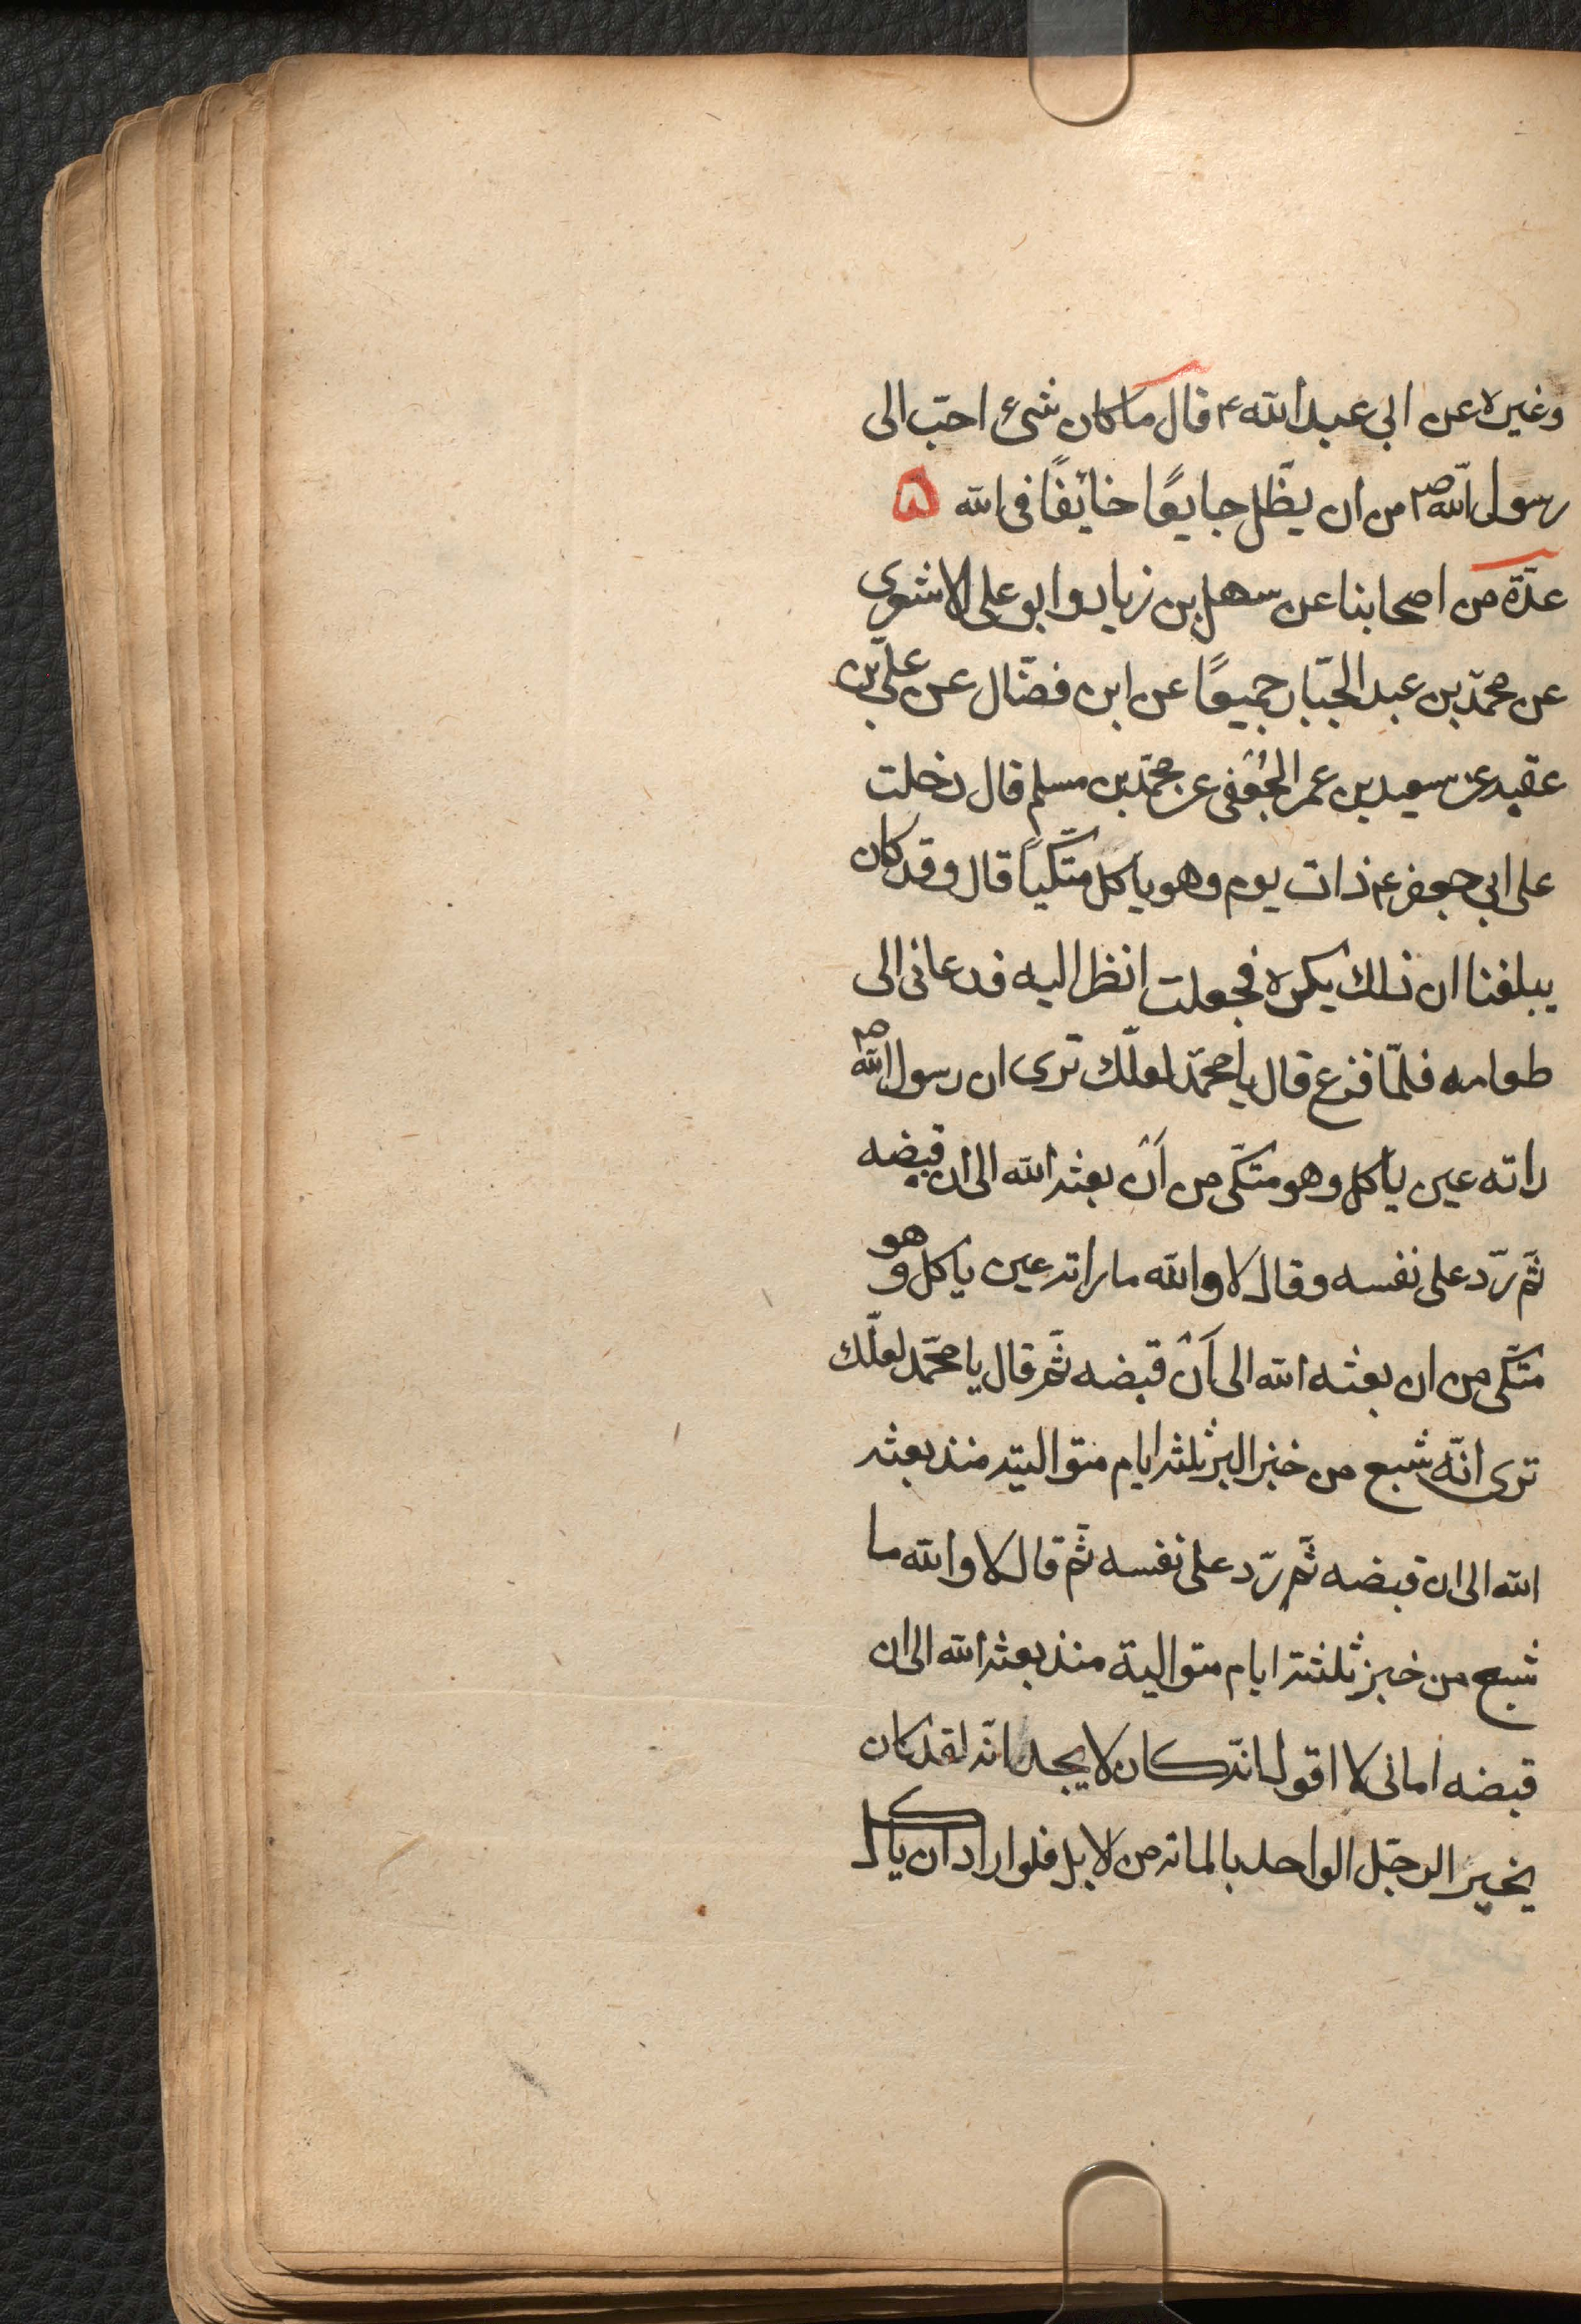 وغيره عن ابى عبد الله ع قال ما كان شئ احبّ الى
رسول الله ص من ان يظّل جايعًا خائفًا فى الله ۵
عدّة من اصحابنا عن سهل بن زياد وابو على الاشعرى
عن محمّد بن عبد الجبّار جميعًا عن ابن فضّال عن علىّ بن
عقبه عن سعيد بن عمر الجُعْفى عن محمّد بن مسلم قال دخلت
على ابى جعفر ع ذات يوم وهو ياكل متّكيًا قال وقد كان
يبلغنا ان ذلك يكره فجعلت انظر اليه فدعانى الى
طعامه فلمّا فرغ قال يا محمّد لعلّك ترى ان رسول الله ص
راته عين ياكل وهو متكّى من اَنْ بعثه الله الى ان قبضه
ثمّ ردّ على نفسه وقال لا والله ما راته عين ياكل وهو
متّكى من ان بعثه الله الى اَنْ قبضه ثمّ قال يا محمّد لعلّك
ترى انّه شبع من خبز البر ثلثه ايام متواليته منذ بعثه
الله الى ان قبضه ثمّ ردّ على نفسه ثمّ قال لا والله ما
شبع من خبز ثلثته ايام متوالية منذ بعثه الله الى ان
قبضه اما انى لا اقول انّه كان لا يجد انّه لقد كان
يخيز الرجّل الواحد بالماته من لابل فلو اراد ان ياكل